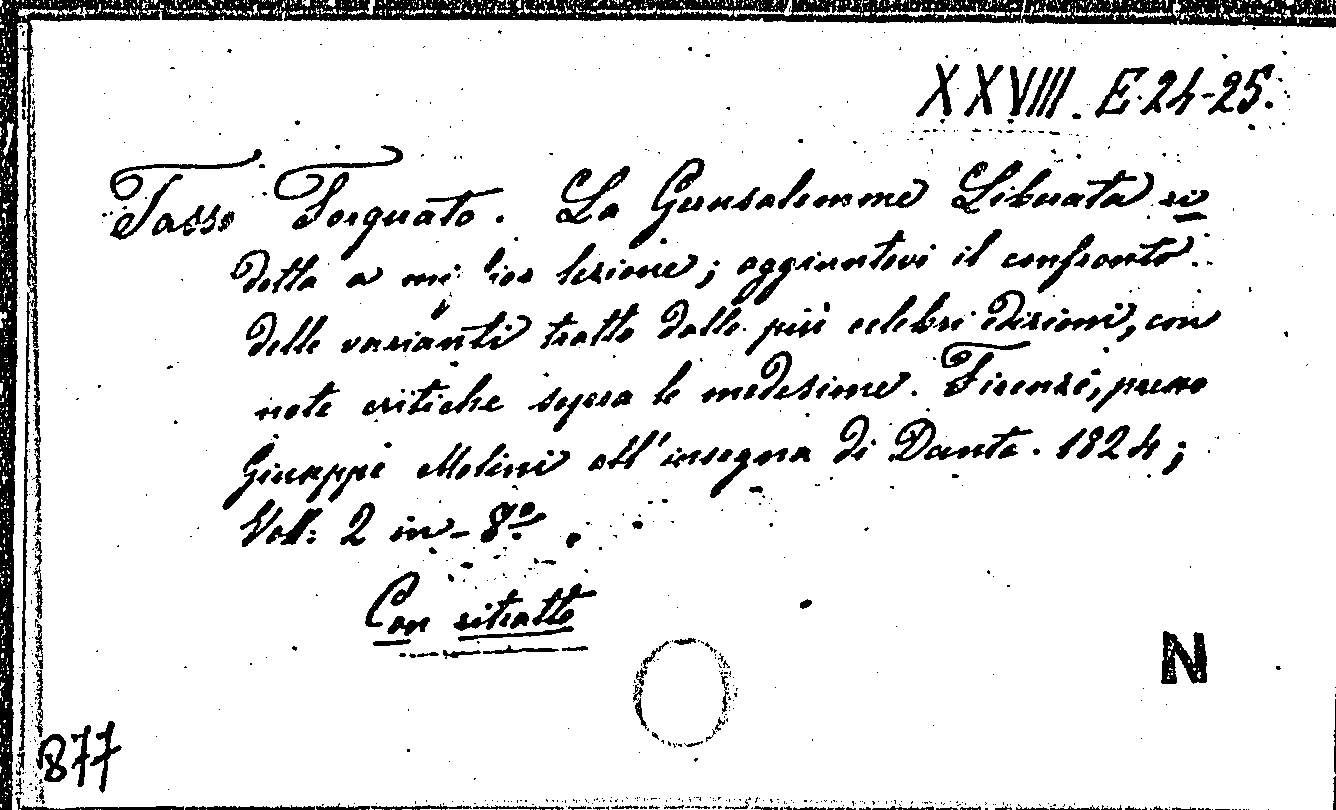 XXVIII. E. 24-25.
Tasso Torquato. La Gerusalemme Liberata ri
dotta a miglior lezione; aggiuntovi il confronto
delle varianti tratte dalle più celebri edizioni, con
note critiche sopra le medesime. Firenze, presso
Giuseppe Molini all'insegna di Dante. 1824;
Voll: 2 in-8º.
Con ritratto
N
877